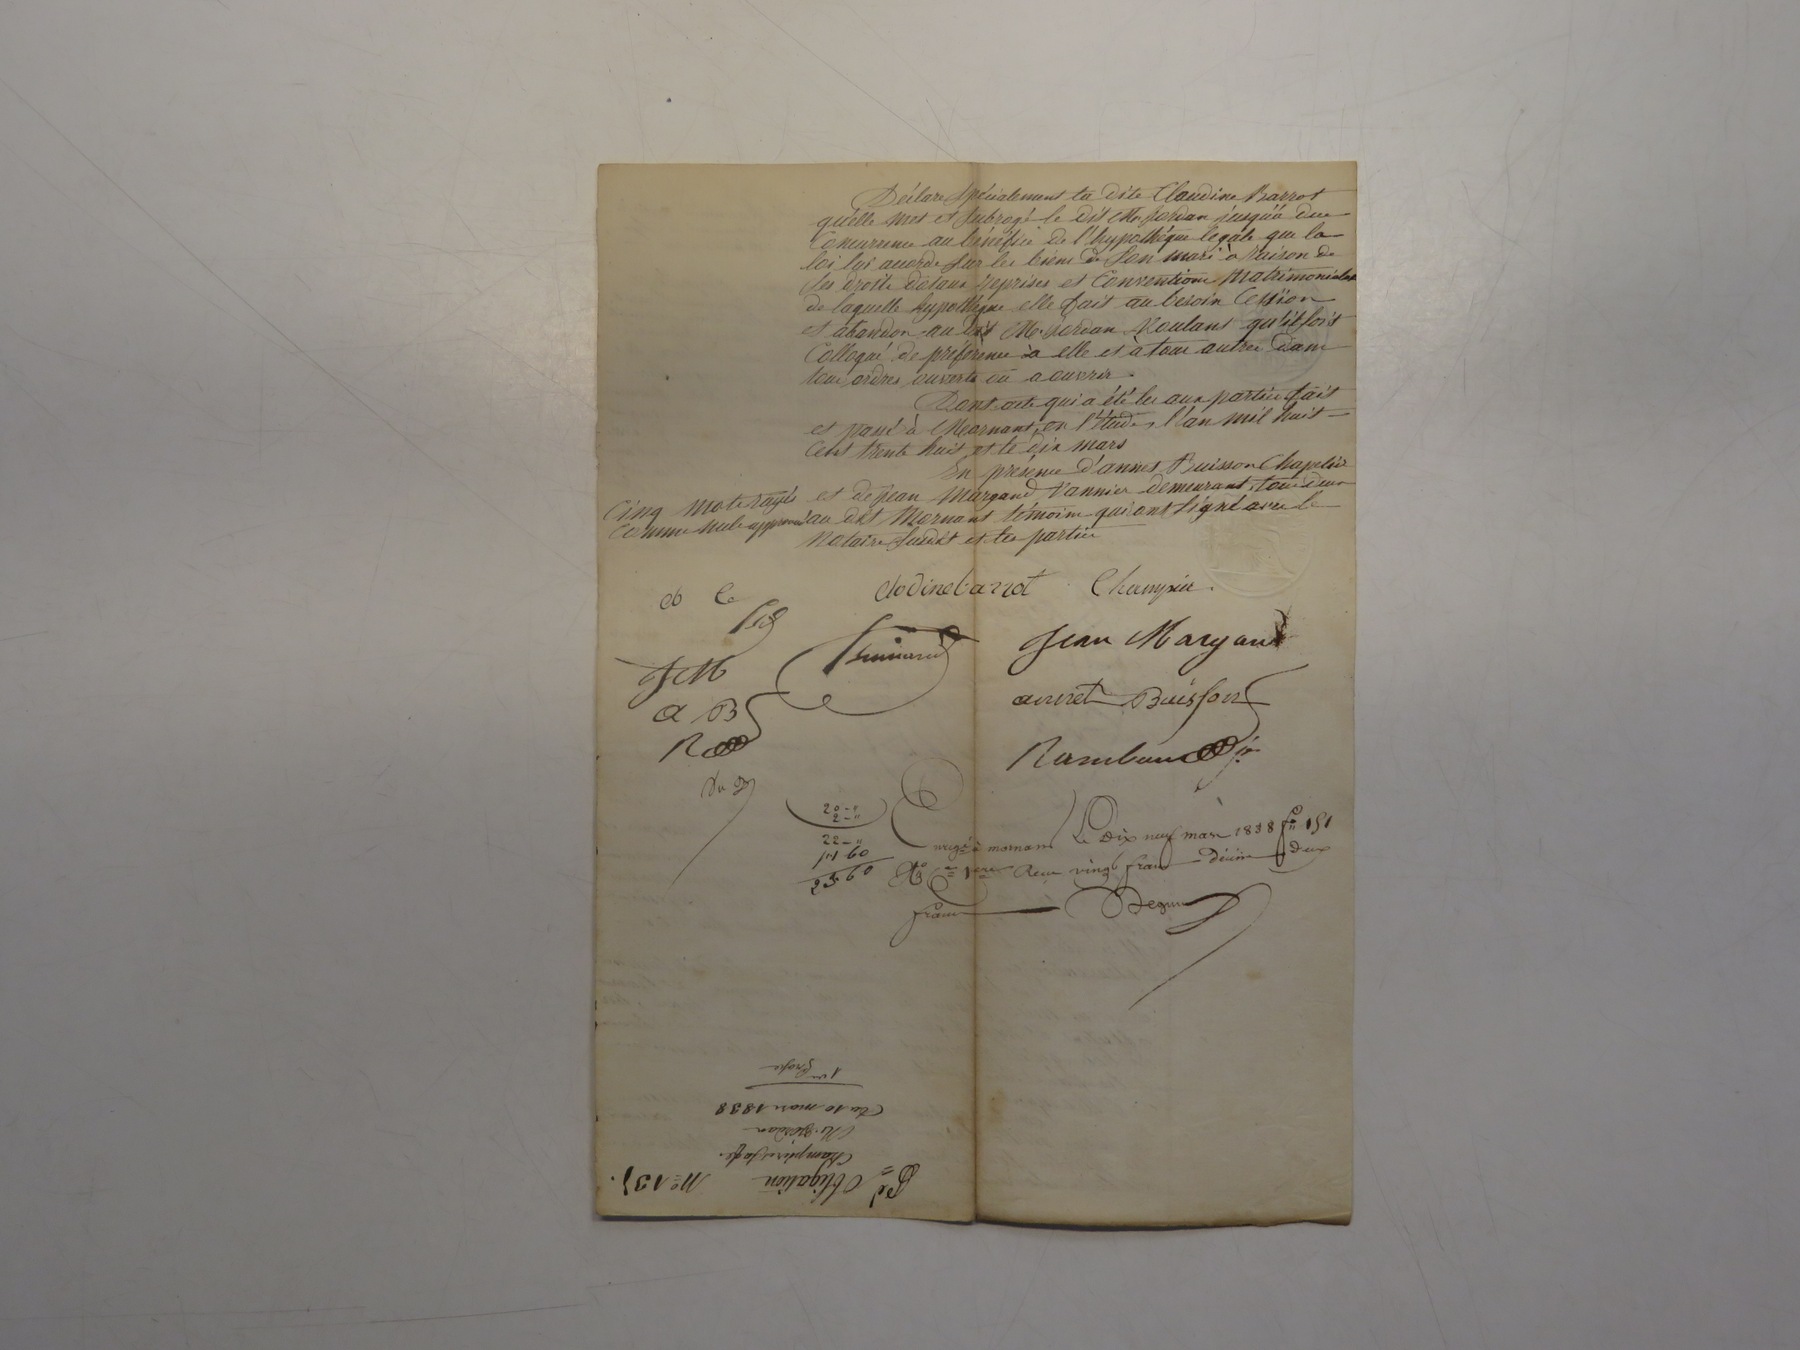 Déclare Spécialement la dite Claudine Barrot
qu'elle met et Subroge le dit Mr. Jordan jusqu'à due
Concurrence au bénéfice de l'hypothéque legale que la
loi lui accorde Sur les biens de Son mari à Raison de
Ses droits dotaux reprises et Conventions Matrimoniales
de laquelle hypothéque elle fait au besoin Cession
et abandon au dit Mr. Jordan Voulant qu'il soit
Colloqué de préférence à elle et à tous autres dans
tous ordres ouverts ou a ouvrir.
Dont acte qui a été lu aux parties fait
et passé à Mornant, en l'étude, l'an mil huit
Cent trente huit et le dix mars
En présence d'annet Buisson Chapelier
et de Jean Margand Vannier demeurant tous deux
au dit Mornant témoins qui ont Signé avec le
Notaire Susdit et les parties
Cinq mots rayés
Comme nuls approuvé
clodine barrot Champier
Jean Margand
JM
annet Buisson
a B
R
20 -"
2 -"
22 -"
1 60
23 60
à mornant Le Dix neuf mars 1838 f° 151
Reçu vingt francs Décime deux
francs
Obligation
N° 13
Champier
Mr. Jordan
Du 10 mars 1838
1ere Grosse